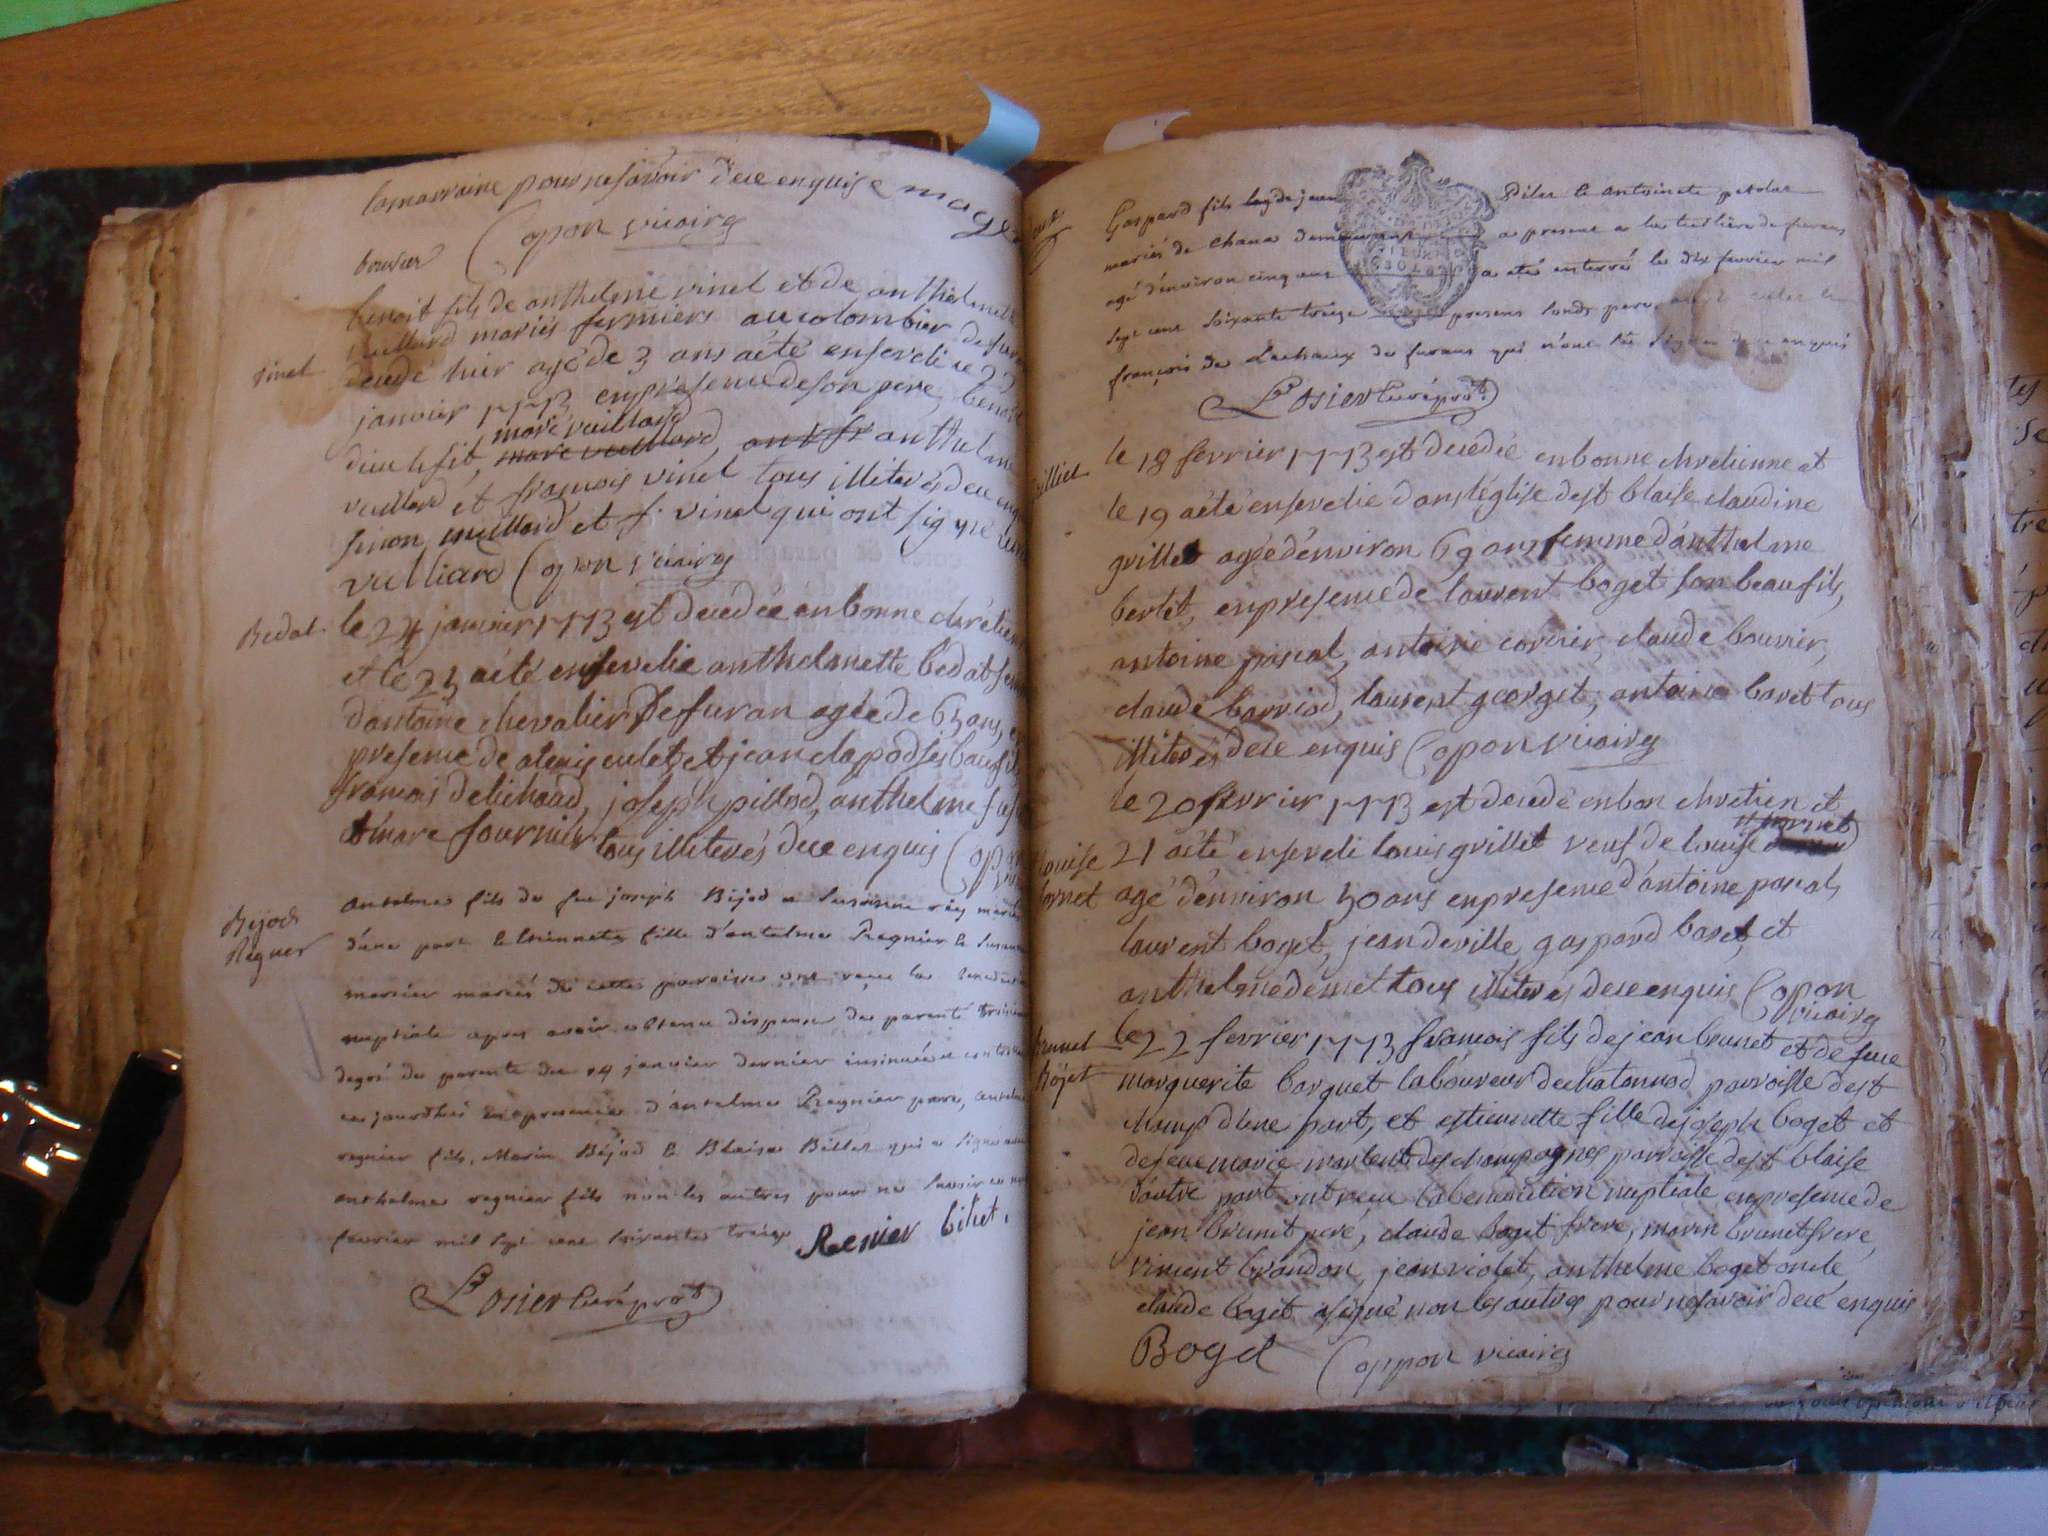 lamarraine pour ne savoir de ce enquise
Copon vicaire
bouvier
benoit fils de anthelme vinet et de anthelmette
vuillard mariés fermiers au colombier de furan
decedé hier agé de 3 ans a été enseveli ce
vinet
janvier 1773 en presence de son pere, benoit
marc vuillard
dieu le fit, marc vuillard, anthelme
vuillard et francois vinet tous illiterés de ce enquis
sinon vuillard et f. vinet qui ont signé
vulliard Copon vicaire
Bedat
le 24 janvier 1773 est decedée en bonne chrétienne
et le 25 a été ensevelie anthelmette bedat femme
d'antoine chevalier de furan agée de 65 ans, en
presence de alexis culet et jean clapod ses beaufils
francois delichaud, joseph pillod, anthelme
et marc fournier tous illiterés de ce enquis Copon
Bejod
Regner
antelme fils de feu joseph Béjod et susanne rey mariés
d'une part et thiennette fille d'antelme Regnier et susanne
mercier mariés de cette paroisse ont reçu la benediction
nuptiale apres avoir obtenu dispense de parenté troisieme
degré de parenté du 14 janvier dernier insinuée et controlée
ce jourdhui en presence d'antelme Regnier pere, antelme
regnier fils, Marin Béjod et Blaise Billet qui a signé avec
anthelme regnier fils non les autres pour ne savoir ce
fevrier mil sept cent soixante treize Renier bilet.
Losier curé prot
Gaspard fils de jean Pilet et antoinete
mariés de Chana demeurant a present a la tuilière de furans
agé d'environ cinq ans a eté enterré le dix fevrier mil
sept cent soixante treize presens son pere
françois de Lachaux de furans qui n'ont sû signer de ce enquis
Losier curé prot
le 18 fevrier 1773 est decedée en bonne chretienne et
le 19 a été ensevelie dans l'église de st blaise claudine
grillet agée d'environ 69 ans femme d'anthelme
berlet, en presence de laurent boget son beaufils,
antoine pascal, antoine cordier, claude bouvier,
claude barriod, laurent georget, antoine baret tous
illiterés de ce enquis Copon vicaire
le 20 fevrier 1773 est decedé en bon chretien et
louise
cornet
21 a été enseveli louis grillet veuf de louise cornet
agé d'environ 50 ans en presence d'antoine pascal,
laurent boget, jean deville, gaspard baret, et
anthelme demet tous illiterés de ce enquis Copon
vicaire
brunet
boget
le 22 fevrier 1773 francois fils de jean brunet et de feue
marguerite barquet laboureur de chatonnod paroisse de st
champ d'une part, et estiennette fille de joseph boget et
de feue marie martent des champagnes paroisse de st blaise
d'autre part ont reçu la benediction nuptiale en presence de
jean brunet pere, claude boget frere, marin brunet frere,
vincent brandon, jean violet, anthelme boget oncle
claude boget a signé non les autres pour ne savoir de ce enquis
Boget Coppon vicaire